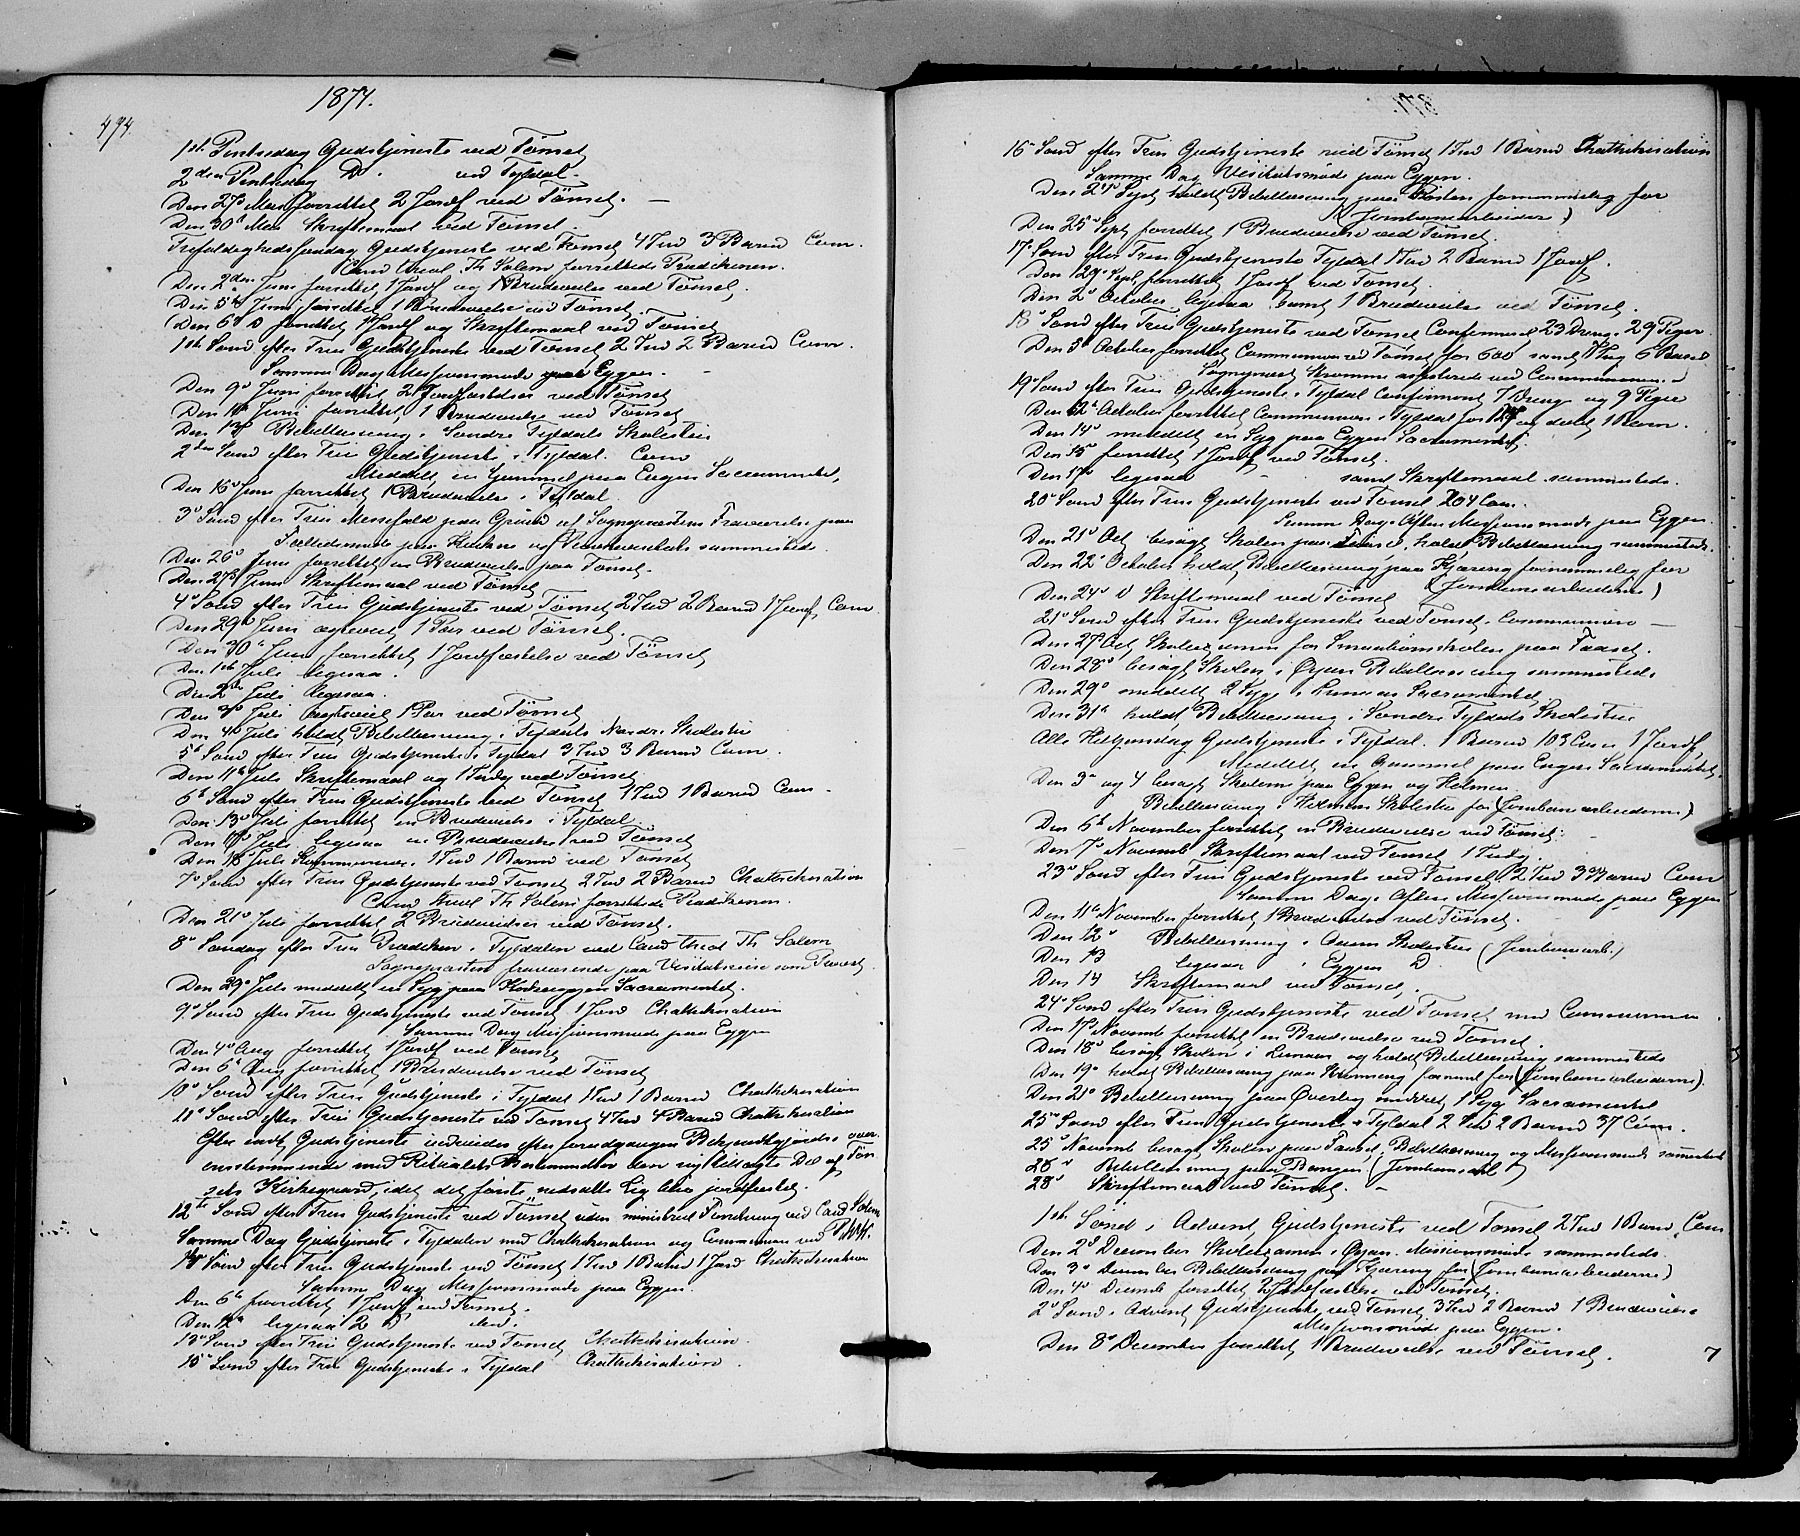 1874.
494.
1ste Pintsedag Gudstjeneste ved Tönset
2den Pintsedag D. ved Tyldal.
Den 27 Mai forrettet 2 Jordf ved Tönset. —
Den 30 Mai Skriftemaal ved Tönset
Trefoldighedssöndag Gudstjeneste ved Tönset 4 Ind 3 Barnd Com.
Cand theol. Th Solem forrettede Prædikenen.
Den 2den Juni forrettet 1 Jordf og 1 Brudevielse ved Tönset.
Den 5te Juni forrettet 1 Brudevielse ved Tönset.
Den 6 D forrettet 1 Jordf og Skriftemaal ved Tönset
1ste Sönd efter Trin Gudstjeneste ved Tönset 2 Ind 2 Barnd Com.
Samme Dag Missionsmöde paa Eggen. -
Den 9 Juni forrettet 2 Jordfæstelser ved Tönset
Den Juni forrettet 1 Brudevielse ved Tönset
Den Bibellæsning i Söndre Tyldals Skolestue
2den Sönd efter Trin Gudstjeneste i Tyldal. Com
Meddelt en Gammel paa Engen Sacramentet,
Den 16 Juni forrettet 1 Brudevielse i Tyldal.
3 Sönd efter Trin Messefald paa Grund af Sognepræstens Fraværelse paa
sammesteds.
Den 26 Juni forrettet en Brudevielse paa Tönset.
Den 27 Juni Skriftemaal ved Tönset
4 Sönd efter Trin Gudstjeneste ved Tönset 2 Ind 2 Barnd 1 Jordf Com.
Den 29 Juni ægteviet 1 Par ved Tönset.
Den 30 Juni forrettet 1 Jordfæstelse ved Tönset
Den 1ste Juli ligesaa.
Den 2den Juli ligesaa.
Den 3 Juli ægteviet 1 Par ved Tönset
Den 4 Juli holdt Bibellæsning i Tyldals Nordre Skolestue
5te Sönd efter Trin Gudstjeneste i Tyldal 3 Ind 3 Barnd Com.
Den 11te Juli Skriftemaal og 1 Indg ved Tönset
6te Sönd efter Trin Gudstjeneste ved Tönset 1 Ind 1 Barnd Com -
Den 13 Juli forrettet en Brudevielse i Tyldal.
Den 17 Juli ligesaa en Brudevielse ved Tönset
Den 18 Juli 1 Ind 1 Barnd ved Tönset
7 Sönd efter Trin Gudstjeneste ved Tönset 2 Ind 2 Barnd Chathekisation
Cand theol Th Solem forrettede Prædikenen.
Den 21 Juli forrettet 2 Brudevielser ved Tönset.
8 Söndag efter Trin Prædiken i Tyldalen ved Cand theol Th Solem
Sognepræsten fraværende paa Visitatsreise som Provst.
Den 29 Juli meddelt en Syg paa Sacramentet.
9 Sönd efter Trin Gudstjeneste ved Tönset 1 Jord Chathekisation
Samme Dag Missionsmöde paa Eggen
Den 4 Aug forrettet 1 Jordf ved Tönset
Den 6 Aug forrettet 1 Brudevielse ved Tönset
10 Sönd efter Trin Gudstjeneste i Tyldal 1 Ind 1 Barnd Chathekisation
11 Sönd efter Trin Gudstjeneste ved Tönset 4 Ind 4 Barnd Chathekisation
Efter endt Gudstjeneste indviedes efter foregaaende Bekjendtgjörelse over
ensstemmende med Ritualets Bestemmelser den ny tillagte Del af Tön
sets Kirkegaard, idet det förste nedsatte Lig blev jordfæstet.
12te Sönd efter Trin Gudstjeneste ved Tönset uden ministriel Forretning ved Cand Solem
Samme Dag Gudstjeneste i Tyldalen med Chathekisation og Communion ved
Sönd efter Trin Gudstjeneste ved Tönset 1 Ind 1 Barnd 1 Jord Chathekisation
Samme Dag Missionsmöde paa Eggen.
Den 6te forrettet 1 Jordf ved Tönset.
Den 12 ligesaa 2 D
Sönd efter Trin Gudstjeneste ved Tönset Chathekisation.
15 Sönd efter Trin Gudstjeneste i Tyldal Chathekisation.
16 Sönd efter Trin Gudstjeneste ved Tönset 1 Ind 1 Barnd Chathekisation
Samme Dag Visitatsmöde paa Eggen.
Den 24 Sept holdt Bibellæsning paa fornemmelig for
(Jernbanearbeider)
Den 25 Sept forrettet 1 Brudevielse ved Tönset.
17 Sönd efter Trin Gudstjeneste Tyldal 1 Ind 2 Barnd 1 Jordf.
Den 29 Sept forrettet 1 Jordf ved Tönset.
Den 2 October ligesaa samt 1 Brudevielse ved Tönset.
18 Sönd efter Trin Gudstjeneste ved Tönset Confirmeret 23 Drenge 29 Piger
Den 5 October forrettet Communion ved Tönset for 600 samt 1 Indg 6 Barnd
Sognepræst assisterede ved Communionen.
19 Sönd efter Trin Gudstjeneste i Tyldal Confirmeret 7 Drenge og 9 Piger
Den 12 October forrettet Communion i Tyldal for og döbt 1 Barn.
Den 14 meddelt en Syg paa Eggen Sacramentet.
Den 15 forrettet 1 Jordf ved Tönset.
Den 17 ligesaa - samt Skriftemaal sammesteds.
20 Sönd efter Trin Gudstjeneste ved Tönset 204 Com.
Samme Dags Aften Missionsmöde paa Eggen.
Den 21 Oct besögt Skolen paa holdt Bibellæsning sammesteds.
Den 22 October holdt Bibellæsning paa Kjæreng fornemmelig for
(Jernbanearbeiderne)
Den 24 D Skriftemaal ved Tönset
21 Sönd efter Trin Gudstjeneste ved Tönset. Communion —
Den 27 Oct Skoleexamen for Smaabornskolen paa Faaset.
Den 28 besögt Skolen i Öyan Bibellæsning sammesteds
Den 29 meddelt 2 Syge i Sacramentet.
Den 31te holdt Bibellæsning i Söndre Tyldals Skolestue
Alle Helgensdag Gudstjeneste i Tyldal. 1 Barnd 103 Com 1 Jordf
Meddelt en Gammel paa Engen Sacramentet.
Den 3 og 4 besögt Skolen paa Eggen og Holmen
Bibellæsning i Holmens Skolestue for (Jernbanearbeiderne)
Den 6te November forrettet en Brudevielse ved Tönset.
Den 7 Novemb Skriftemaal ved Tönset 1 Indg.
23 Sönd efter Trin Gudstjeneste ved Tönset 2 Ind 3 Barnd Com
Samme Dags Aften Missionsmöde paa Eggen
Den 11te November forrettet 1 Brudevielse ved Tönset.
Den 12 Bibellæsning i Skolestue (Jernbanearb.)
Den 13 ligesaa i Eggen D
Den 14 Skriftemaal ved Tönset.
24 Sönd efter Trin Gudstjeneste ved Tönset med Communion
Den 17 Novemb forrettet en Brudevielse ved Tönset.
Den 18 besögt Skolen i og holdt Bibellæsning sammesteds
Den 19 holdt Bibellæsning paa fornemt for (Jernbanearbeiderne).
Den 21 Bibellæsning paa Överbeg meddelt 1 Syg Sacramentet
25 Sönd efter Trin Gudstjeneste i Tyldal 2 Ind 2 Barnd 37 Com.
25 Novemb besögt Skolen paa Faaset, Bibellæsning og Missionsmöde sammesteds
26 Bibellæsning paa Bangen (Jernbanearb)
28 Skriftemaal ved Tönset. -
1ste Sönd i Advent, Gudstjeneste ved Tönset 2 Ind 1 Barnd, Com
Den 2 December Skoleexamen i Öyan. Missionsmöde sammesteds.
Den 3 December Bibellæsning paa Kjæreng for (Jernbanearbeiderne)
Den 4 Decemb forrettet 2 Jordfæstelse ved Tönset.
2 Sönd i Advent Gudstjeneste ved Tönset 3 Ind 2 Barnd 1 Brudevielse
Missionsmöde paa Eggen.
Den 8 December forrettet 1 Brudevielse ved Tönset.
7